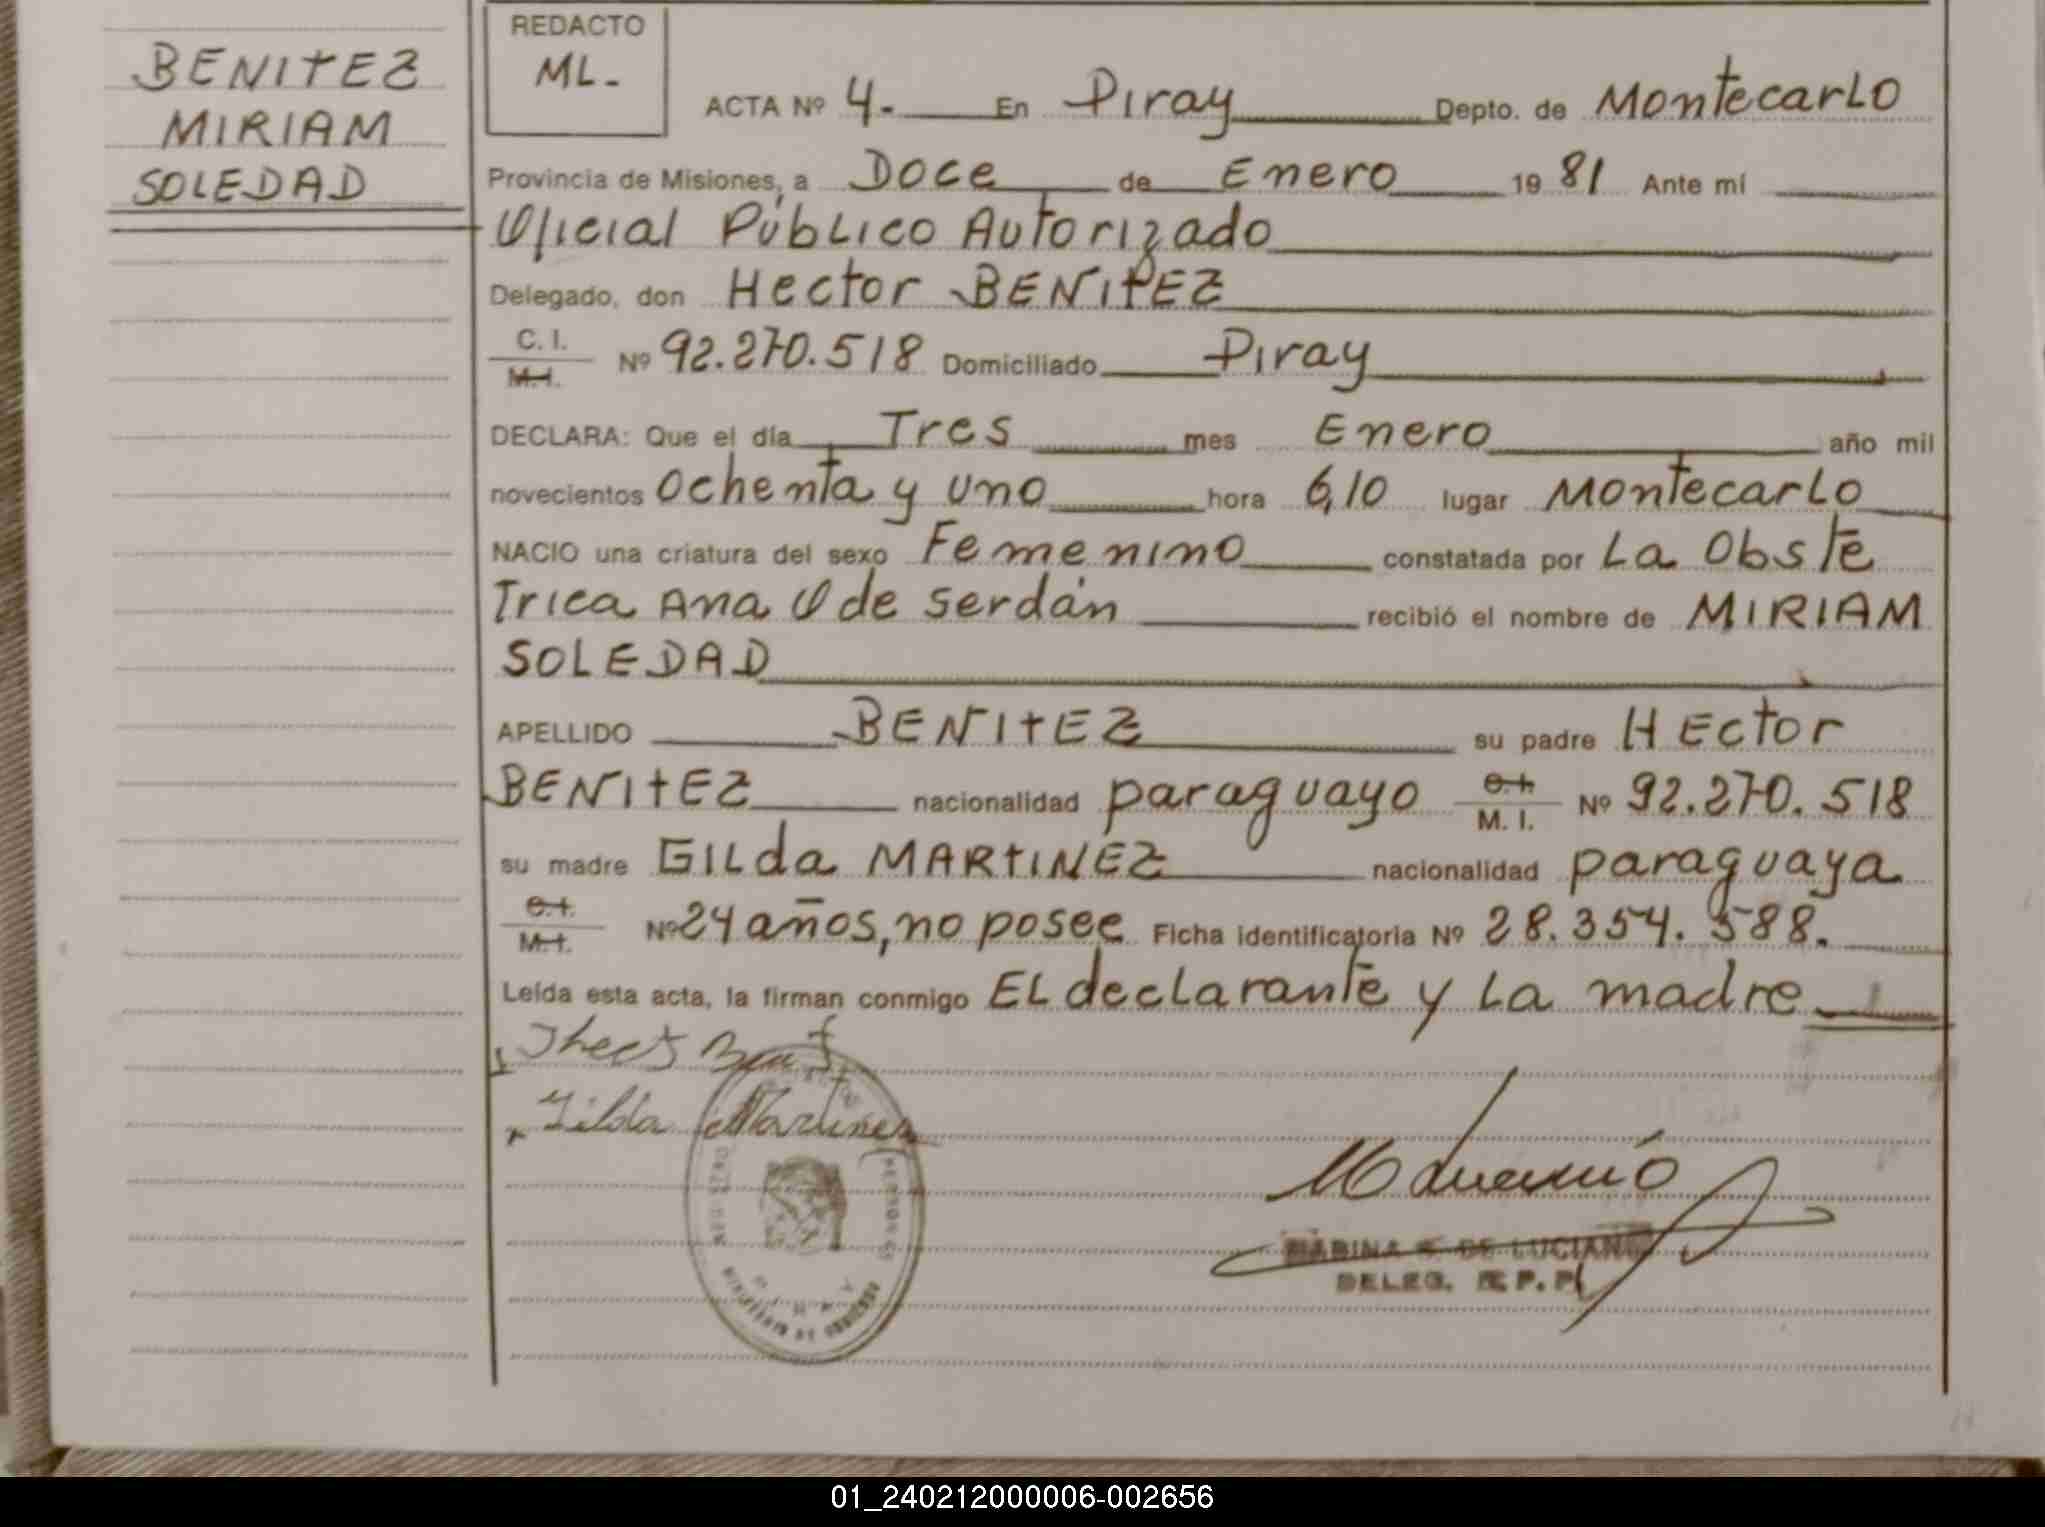 BENITEZ
MIRIAM
SOLEDAD
REDACTO
ML-
ACTA Nº 4.- En Piray Depto. de Montecarlo
Provincia de Misiones, a Doce de Enero 1981 Ante mí
Oficial Público Autorizado
Delegado, don Hector BENITEZ
C. I.
M. I.
Nº 92.270.518 Domiciliado Piray
DECLARA: Que el día Tres mes Enero año mil
novecientos ochenta y uno hora 6,10 lugar Montecarlo
NACIO una criatura del sexo Femenino constatada por La Obste
trica Ana O de Serdán recibió el nombre de MIRIAM
SOLEDAD
APELLIDO BENITEZ su padre HEctor
BENITEZ nacionalidad paraguayo C. I. M. I. Nº 92.270.518
su madre GILda MARTINEZ nacionalidad paraguaya
C. I.
M. I.
Nº 24 años, no posee Ficha identificatoria Nº 28.354.588.
Leída esta acta, la firman conmigo EL declarante y La madre
Gilda Martinez
DE LUCIANO
DELEG. R. P. P.
PIRAY
MINISTERIO DE GOBIERNO
01_240212000006-002656